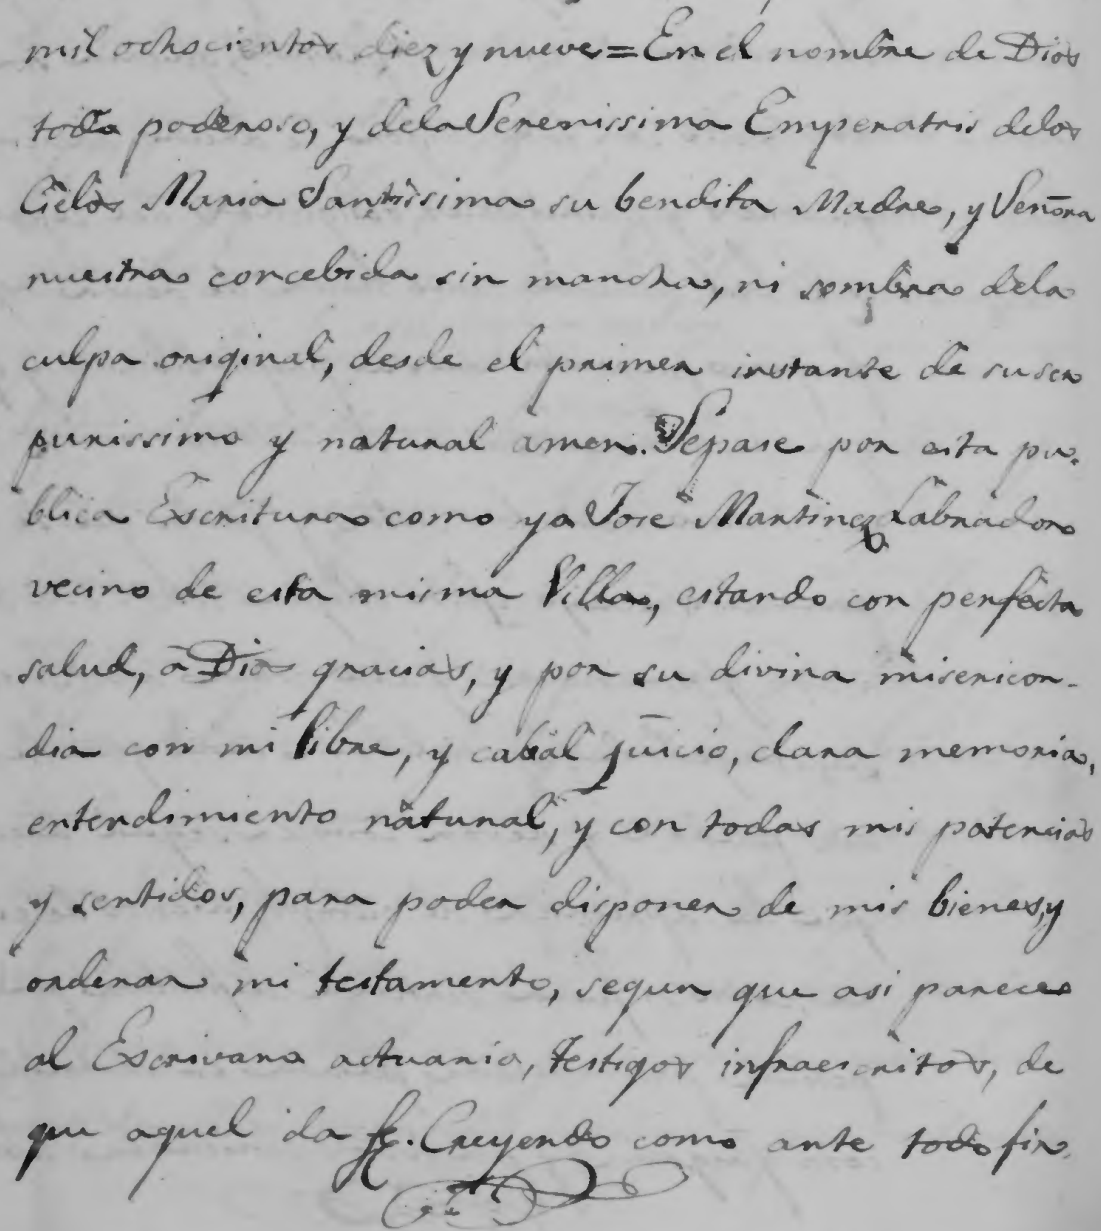 mil ochocientos diez y nueve = En el nombre de Dios
todo poderoso, y dela Serenissima Emperatris delos
Cielos Maria Santissima su bendita Madre, y Señora
nuestra concebida sin mancha, ni sombra dela
culpa original, desde el primer instante de su ser
purissimo y natural amen. Sepase por esta pu-
blica Escritura como yo Jose Martinez Labrador
vecino de esta misma Villa, estando con perfecta
salud, à Dios gracias, y por su divina misericor-
dia con mi libre, y cabal juicio, clara memoria,
entendimiento natural, y con todas mis potencias
y sentidos, para poder disponer de mis bienes, y
ordenar mi testamento, segun que asi parece
al Escrivano actuario, testigos infraescritos, de
que aquel da fe. Creyendo como ante todo fir-